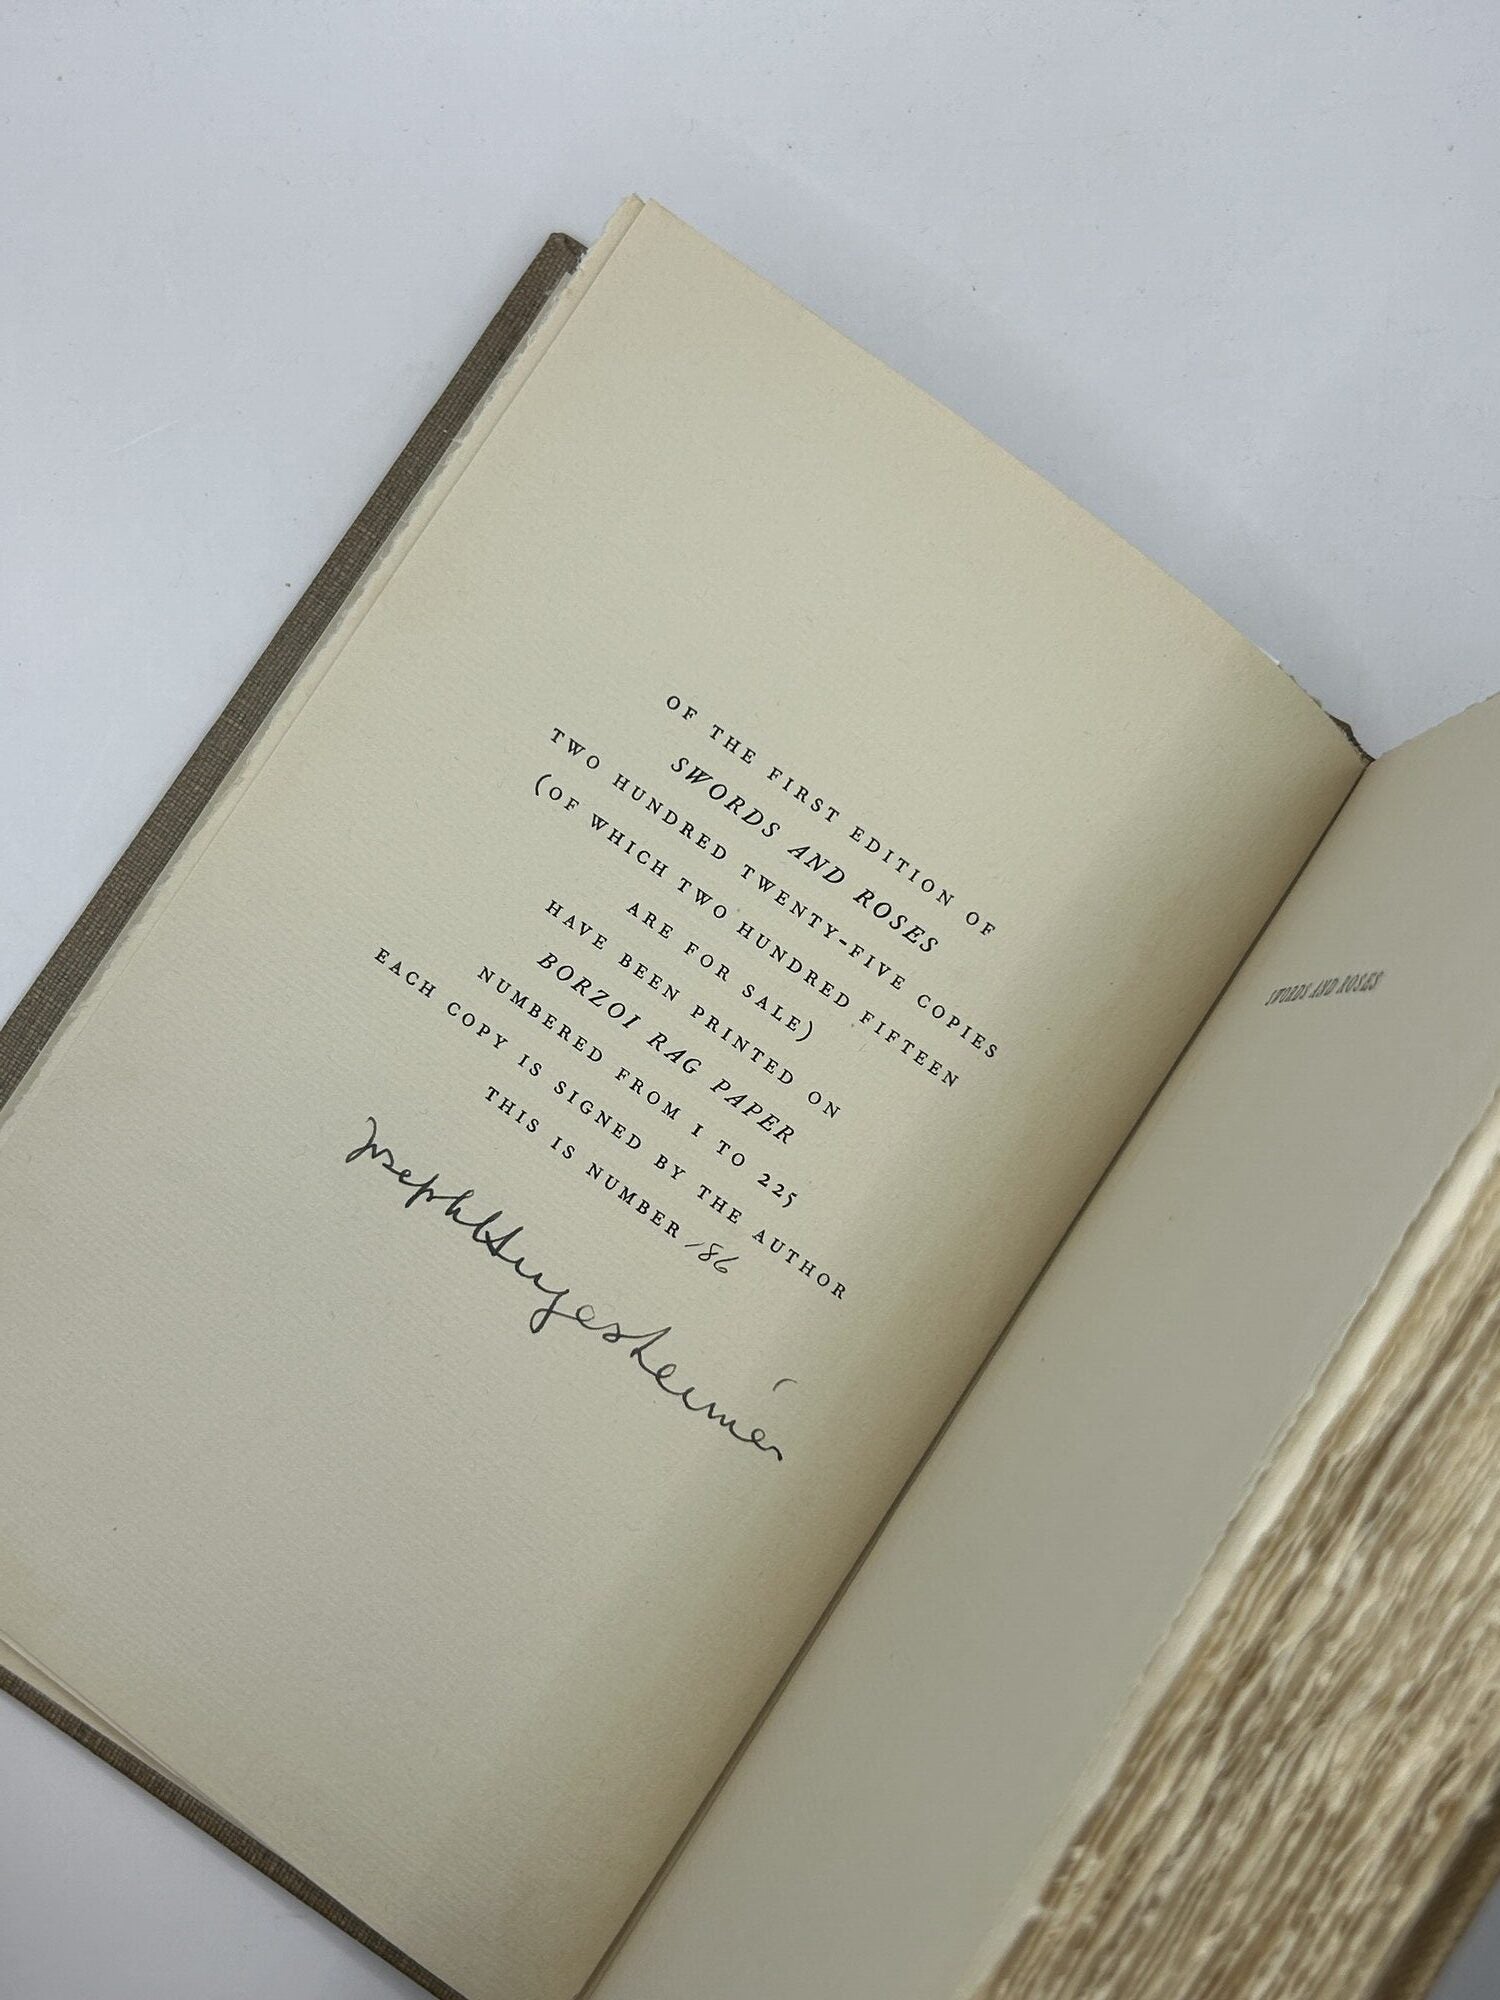 OF THE FIRST EDITION OF
SWORDS AND ROSES
TWO HUNDRED TWENTY-FIVE COPIES
(OF WHICH TWO HUNDRED FIFTEEN
ARE FOR SALE)
HAVE BEEN PRINTED ON
BORZOI RAG PAPER
NUMBERED FROM 1 TO 225
EACH COPY IS SIGNED BY THE AUTHOR
THIS IS NUMBER 186
Joseph Hergesheimer
SWORDS AND ROSES